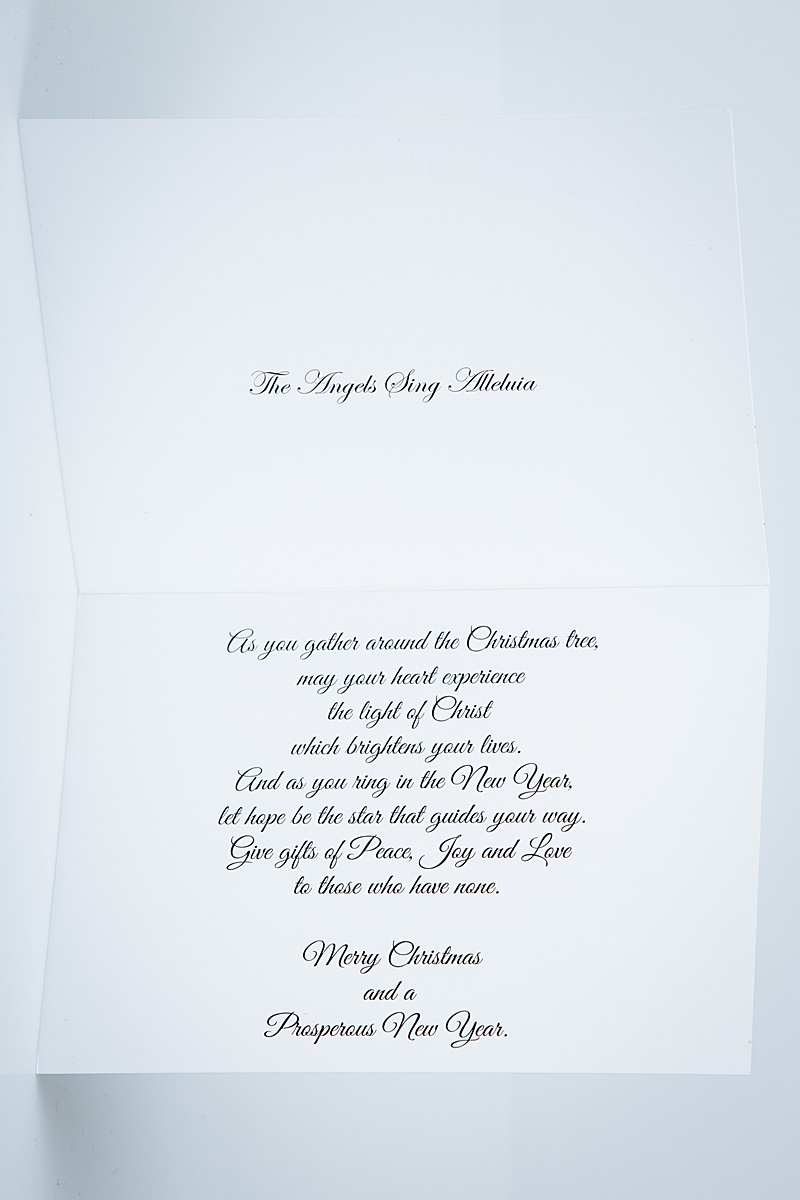 The Angels Sing Alleluia
As you gather around the Christmas tree,
may your heart experience
the light of Christ
which brightens your lives.
And as you ring in the New Year,
let hope be the star that guides your way.
Give gifts of Peace, Joy and Love
to those who have none.
Merry Christmas
and a
Prosperous New Year.